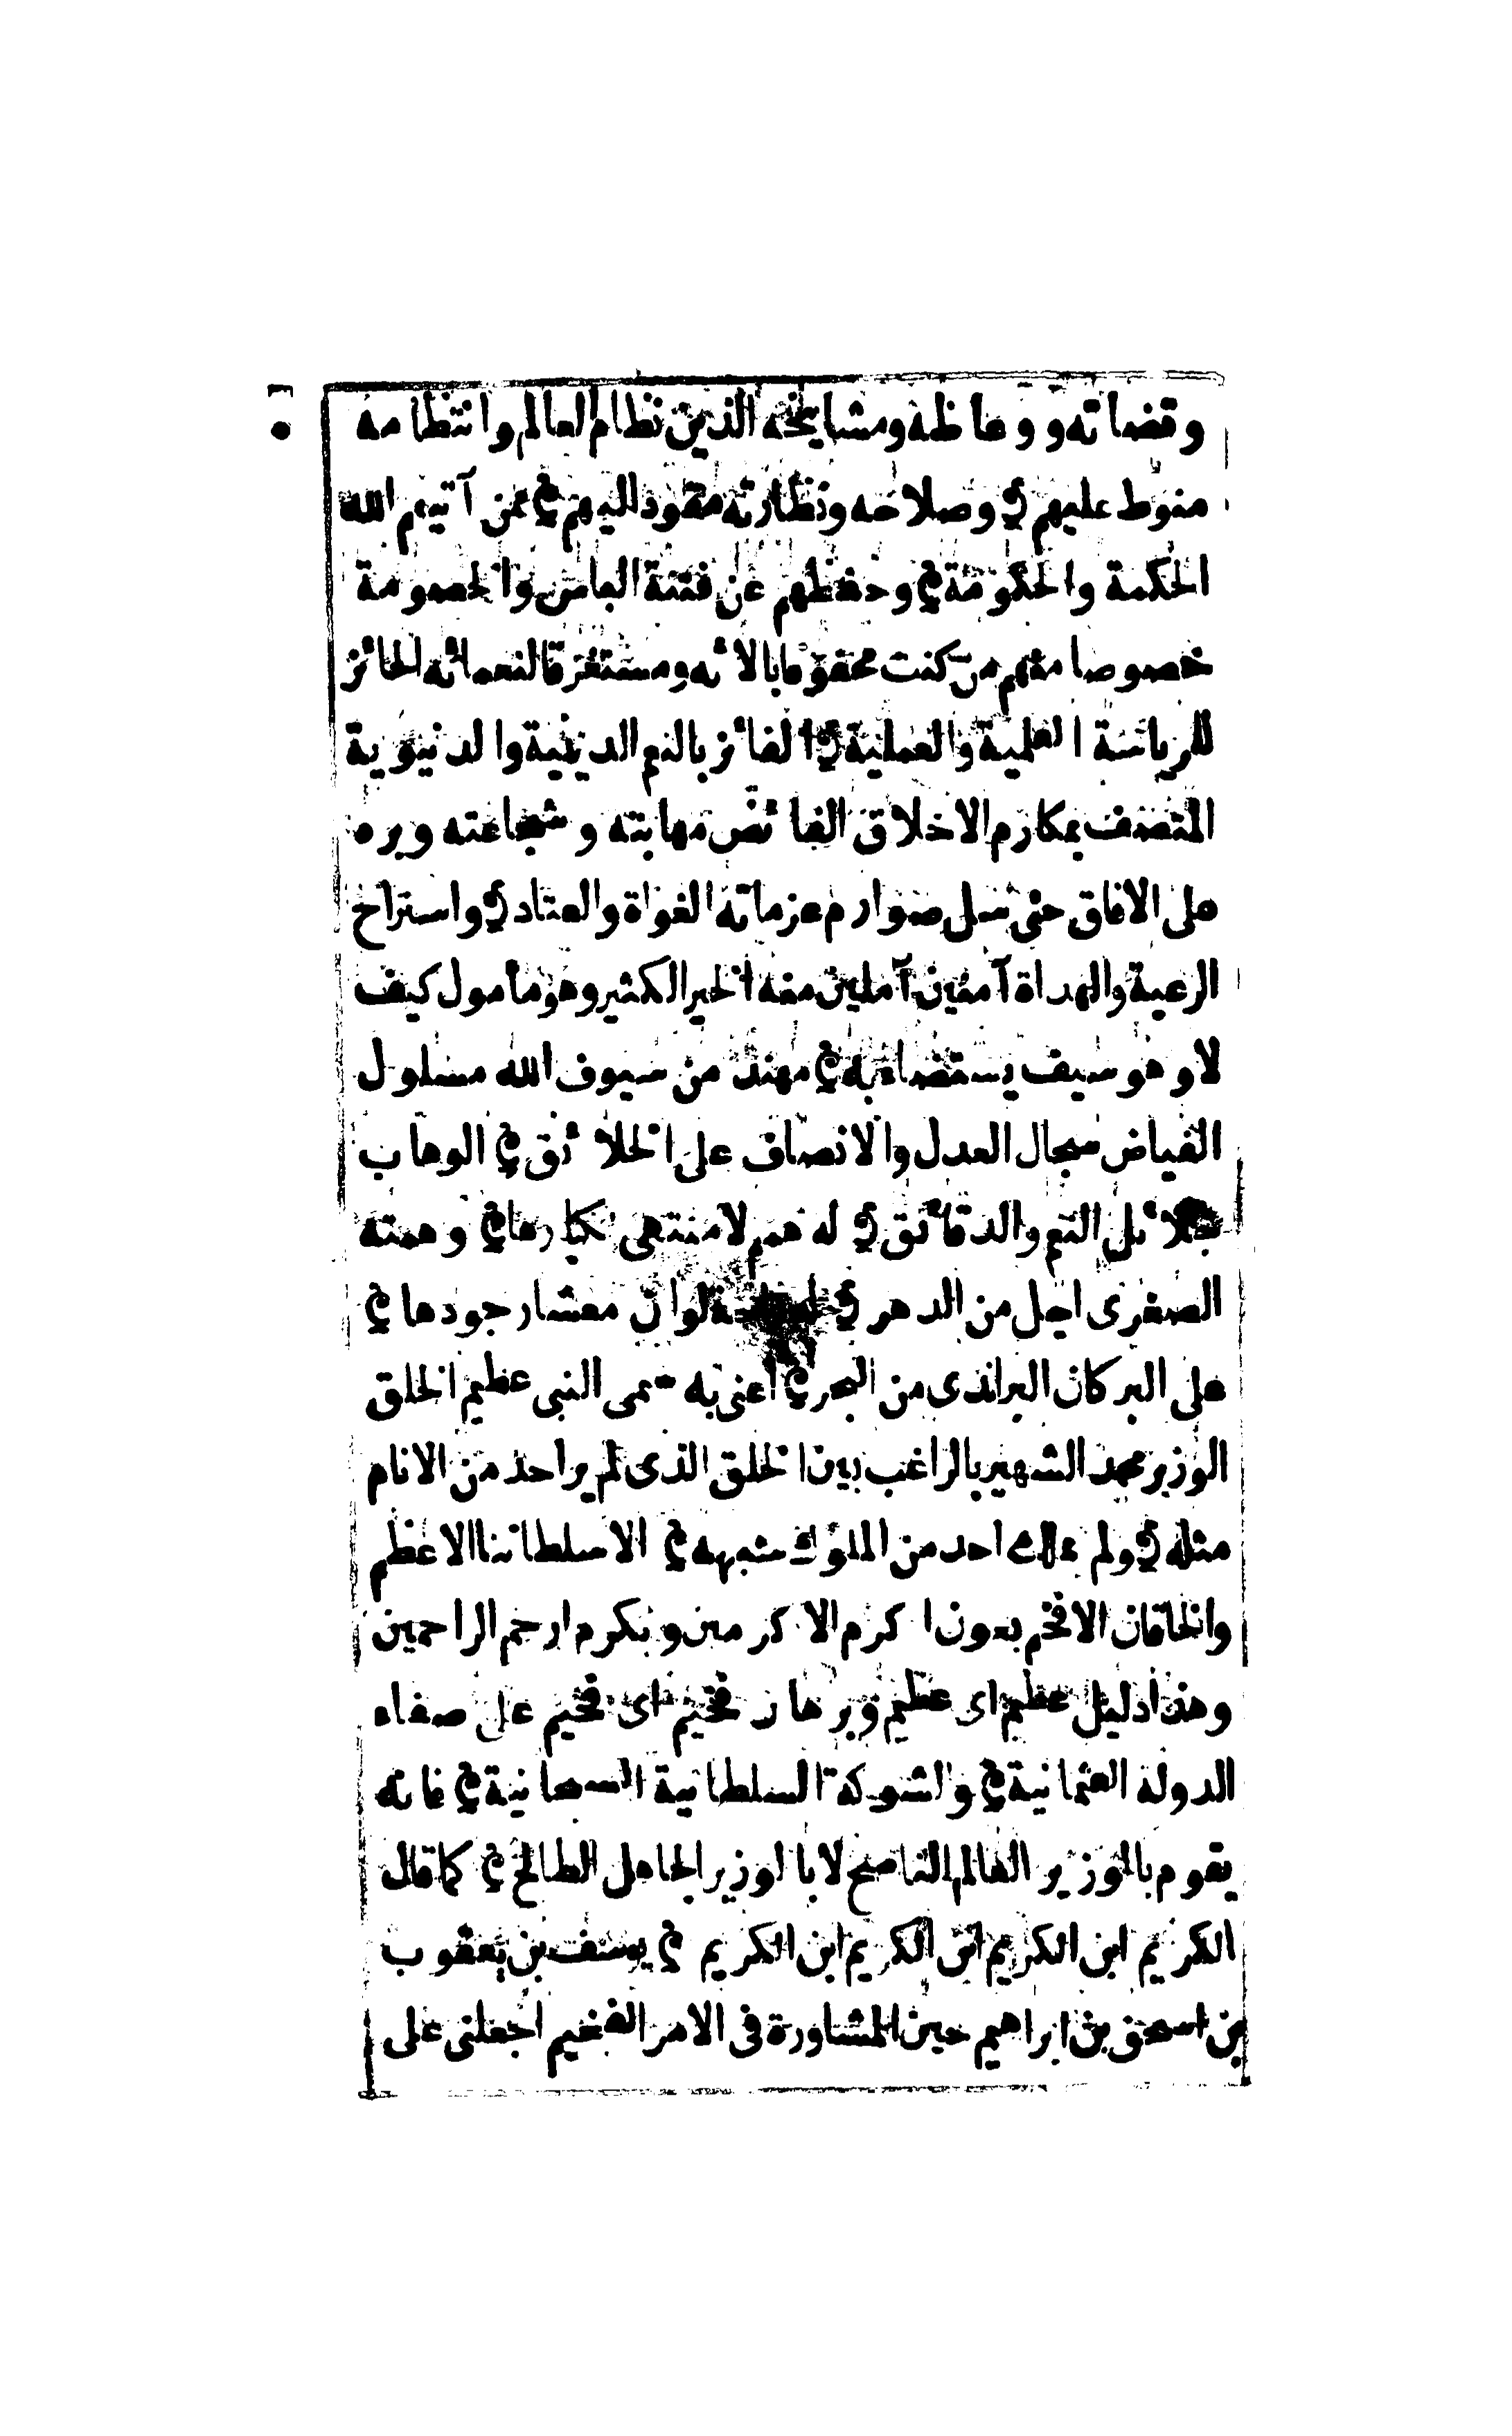 وقضاته ووعاظه ومشايخه الذين نظام العالم وانتظامه
منوط عليهم وصلاحه ونظارته مقود اليهم ممن آتيهم الله
الحكمة والحكومة وحفظهم عن فتنة الباس والخصومة
خصوصا منهم من كنت محقوفا بالائه ومستغرقا لنعمائه الحائز
للرياسة العلمية والعملية الفائز بالنعم الدينية والدنيوية
المتصف بمكارم الاخلاق الفائض مهابته وشجاعته وبره
على الافاق حتى سل صوارم عزماته الغواة والعتادى واستراح
الرعية والهداة آمنين آملين منه الخير الكثير وهو مأمول كيف
لا وهو سيف يستضاء به مهند من سيوف الله مسلول
الفياض سجال العدل والانصاف على الخلائق الوهاب
بجلائل النعم والدقائق له همم لا منتهى لكبارها وهمته
الصغرى اجل من الدهر له لوان معشار جودها
على البر كان البر اندى من البحر اعنى به سمى النبى عظيم الخلق
الوزير محمد الشهير بالراغب بين الخلق الذى لم ير احد من الانام
مثله ولم يملك احد من الملوك شبهه الا سلطاننا الاعظم
والخاقان الافخم بعون اكرم الاكرمين وبكرم ارحم الراحمين
وهذا دليل عظيم اى عظيم وبرهان فخيم اى فخيم على صفاء
الدولة العثمانية والشوكة السلطانية السبحانية فانه
يقوم بالوزير العالم الناصح لا بالوزير الجاهل الطالح كما قال
الكريم ابن الكريم ابن الكريم ابن الكريم يوسف بن يعقوب
بن اسحق بن ابراهيم حين المشاورة فى الامر الفخيم اجعلنى على